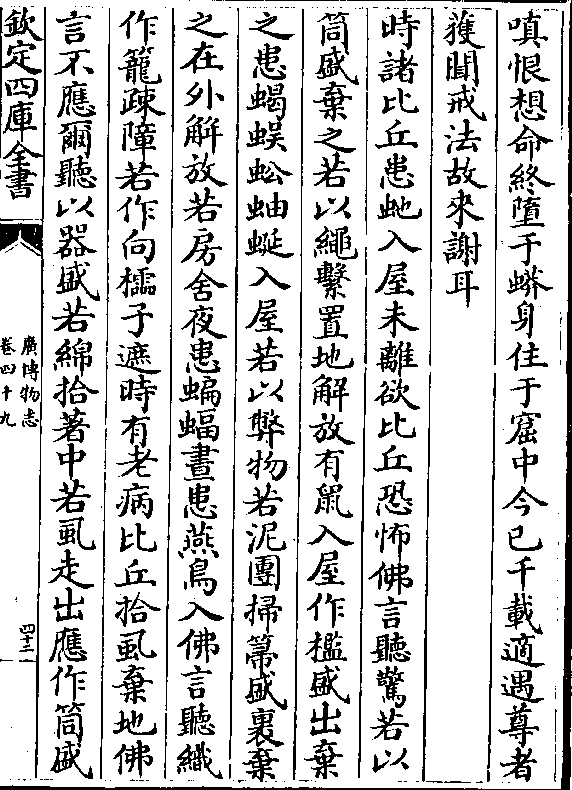 嗔恨想命終墮于蟒身住于窟中今已千載適遇尊者
獲聞戒法故來謝耳
時諸比丘患虵入屋未離欲比丘恐怖佛言聽驚若以
筒盛棄之若以繩繫置地解放有鼠入屋作檻盛出棄
之患蝎蜈蚣蚰蜒入屋若以弊物若泥團掃箒盛裹棄
之在外解放若房舍夜患蝙蝠晝患燕鳥入佛言聽織
作籠疎障若作向櫺子遮時有老病比丘拾虱棄地佛
言不應爾聽以器盛若綿拾著中若虱走出應作筒盛
欽定四庫全書
廣博物志
卷四十九
四十三